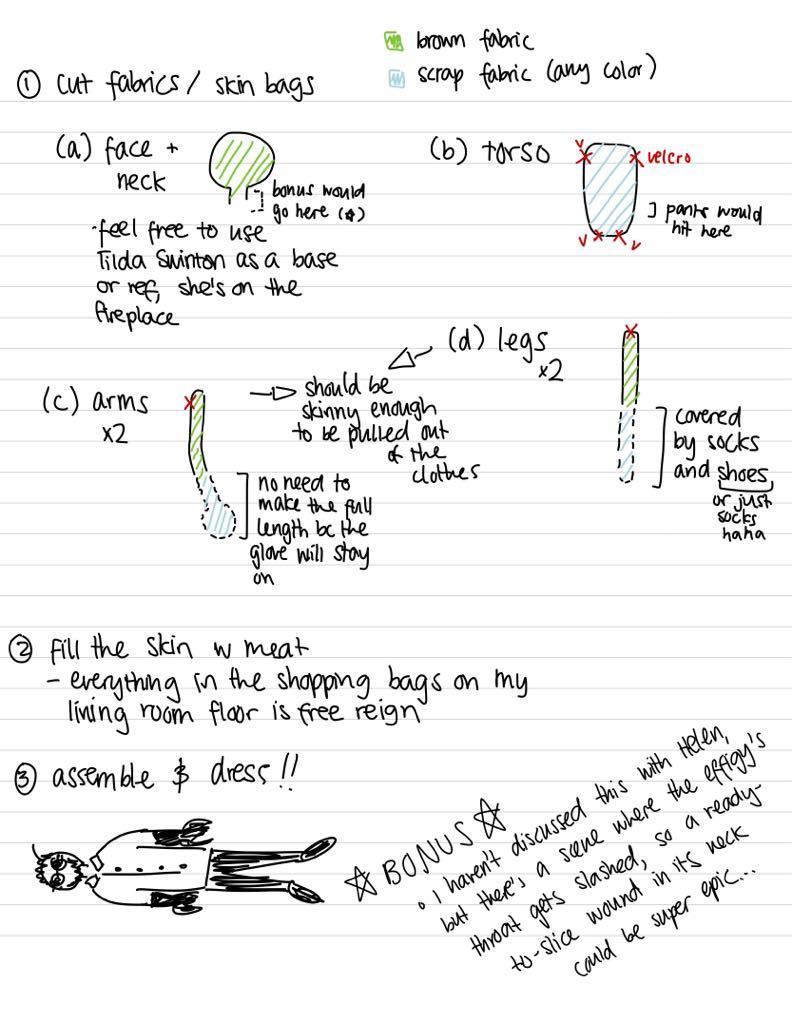 brown fabric
scrap fabric (any color)
① cut fabrics / skin bags
(a) face +
neck
bonus would
go here (☆)
-feel free to use
Tilda Swinton as a base
or ref, she's on the
fireplace
(b) torso
v
velcro
pants would
hit here
v
v
(c) arms
x2
should be
skinny enough
to be pulled out
of the
clothes
no need to
make the full
length bc the
glove will stay
on
(d) legs
x2
covered
by socks
and shoes
or just
socks
haha
② Fill the skin w meat
- everything in the shopping bags on my
living room floor is free reign
③ assemble & dress!!
☆ BONUS ☆
• I haven't discussed this with Helen,
but there's a scene where the effigy's
throat gets slashed, so a ready-
to-slice wound in its neck
could be super epic...